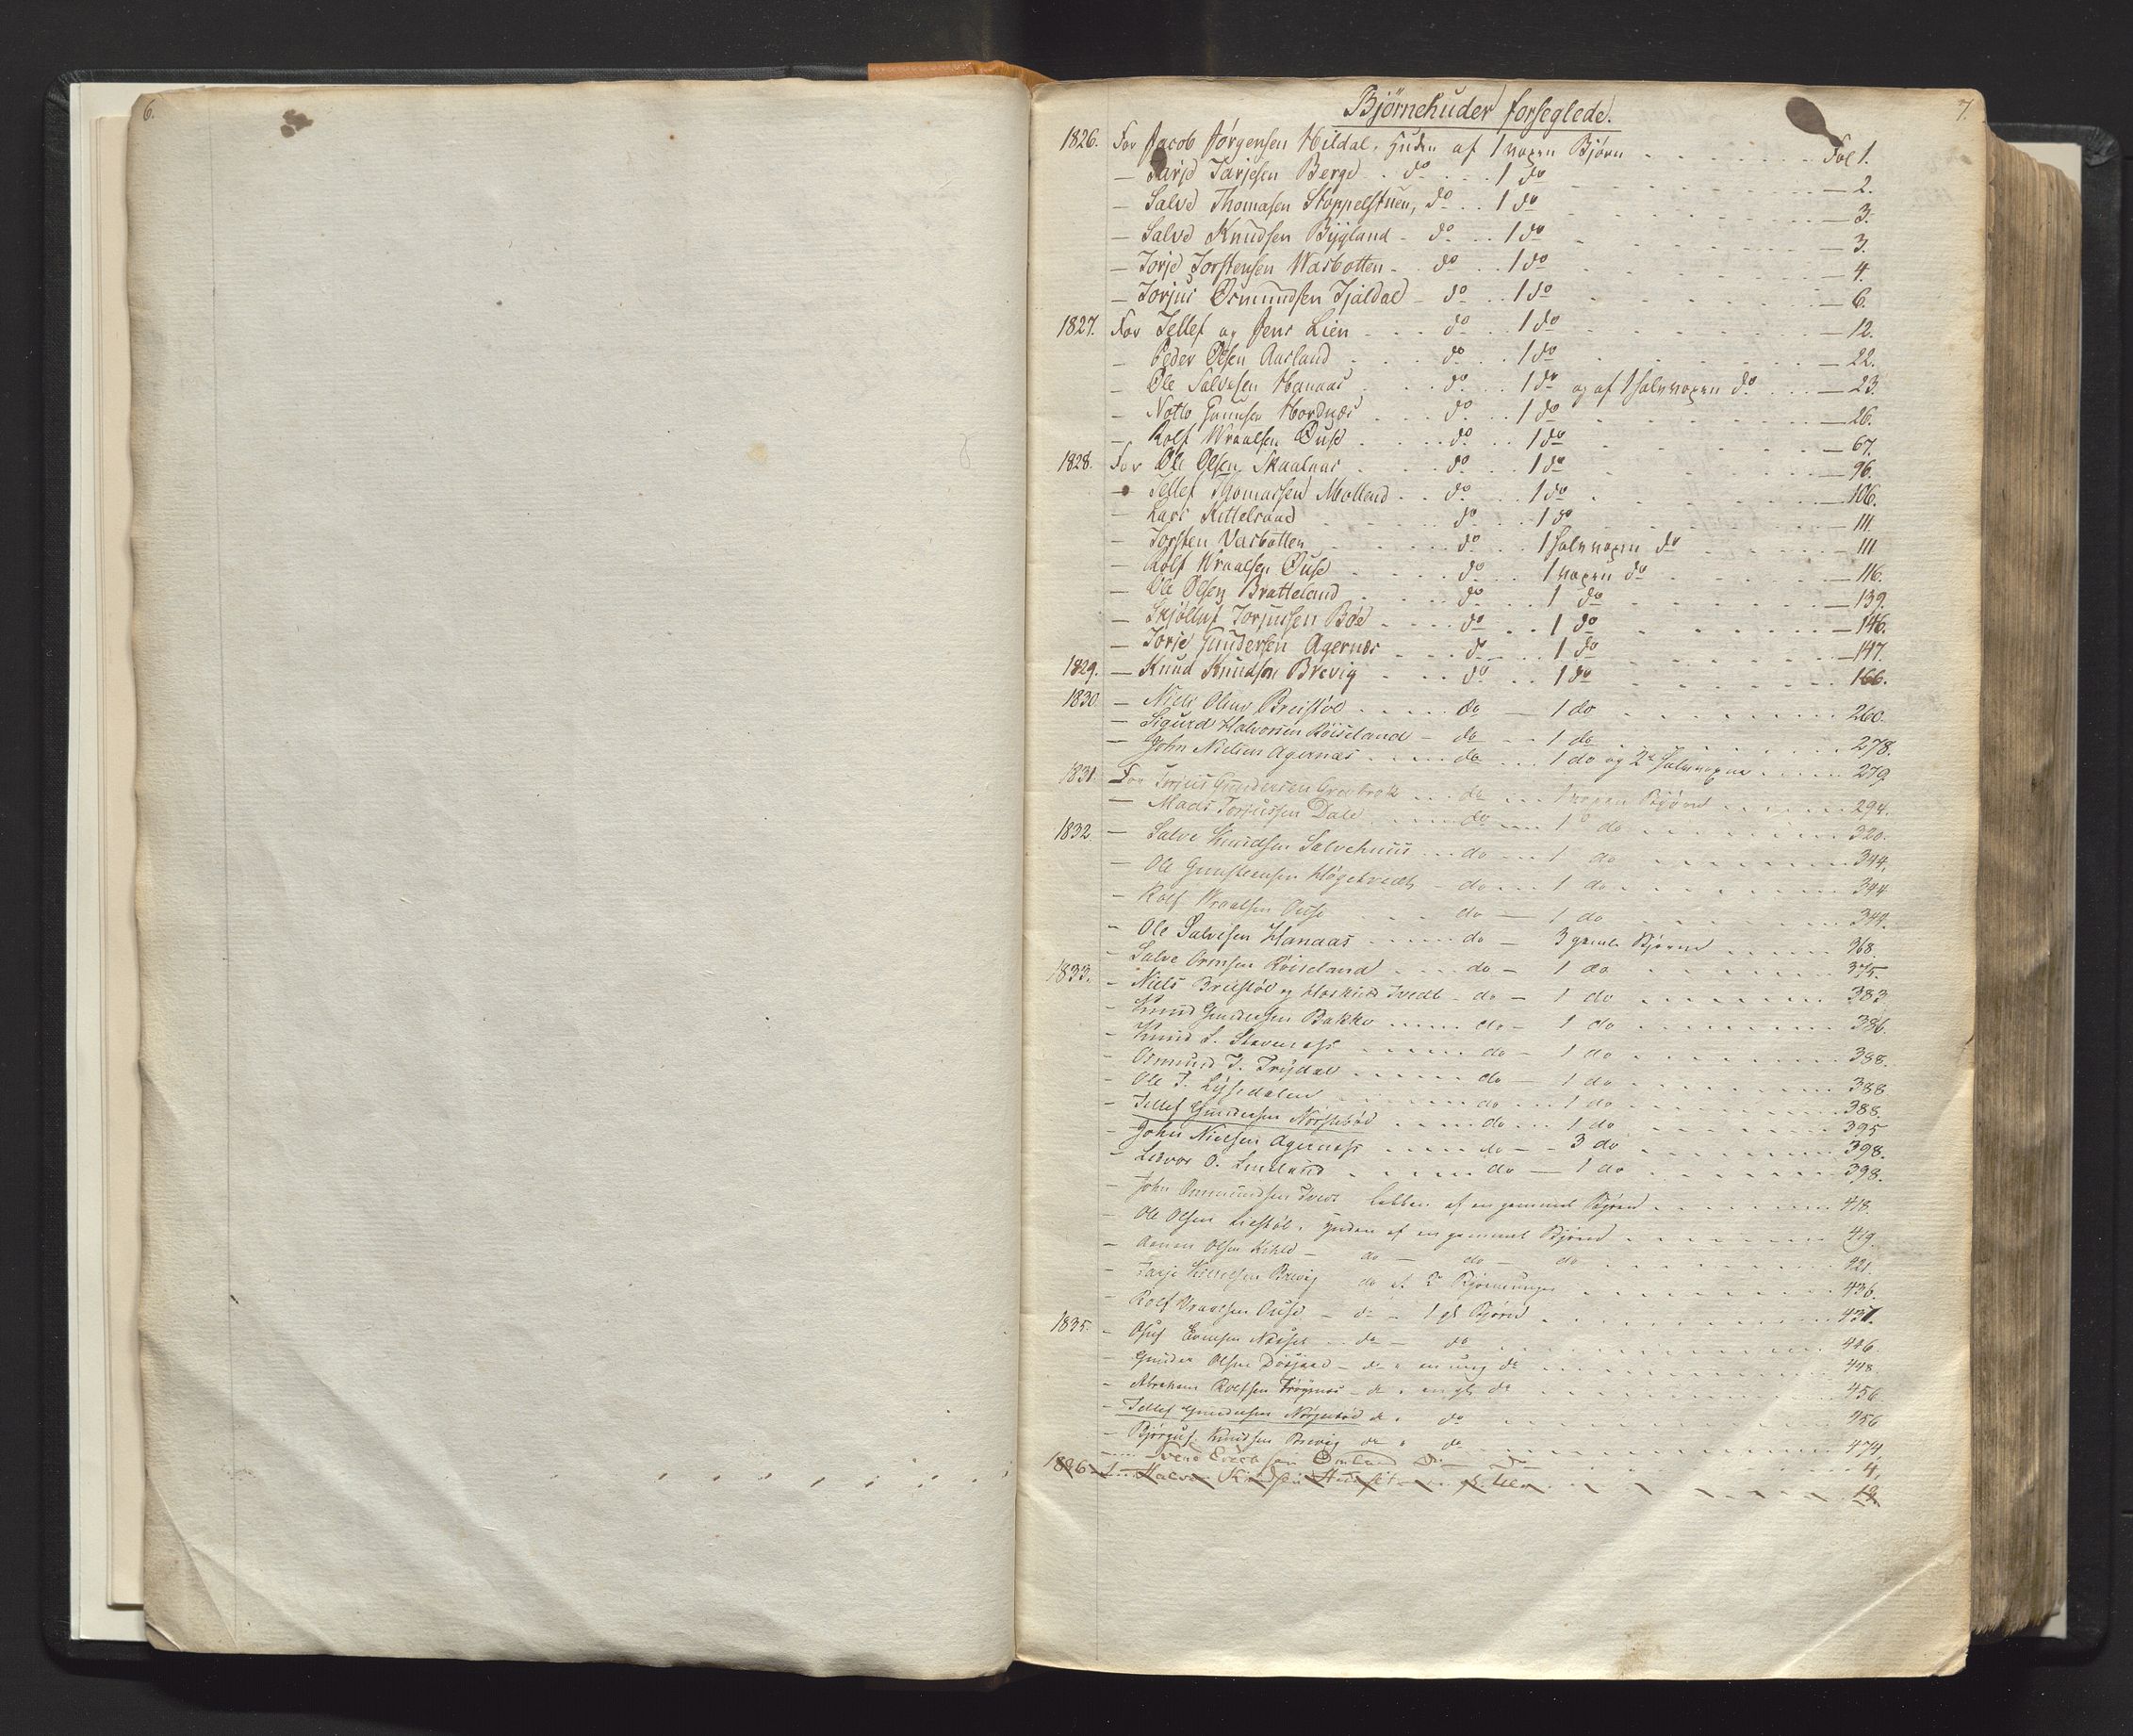 6.
7.
Bjørnehuder forseglede.
1826. For Jacob Jørgensen Hildal, Huden af 1 voxen Bjørn . . . . . . Fol 1.
— Tarje Tarjesen Berge . . do . . . 1 do . . . — 2.
— Salve Thomasen Stoppelstuen, do . . 1 do . . . — 3.
— Salve Knudsen Bygland - do . . 1 do . . . — 3.
— Torje Torstensen Wasbotten - do . . 1 do . . . — 4.
— Torjus Osmundsen Tjaldal - do . . 1 do . . . — 6.
1827. For Tellef og Jens Lien - . . do . . 1 do . . . — 12.
— Peder Olsen Aasland . . . do . . 1 do . . . — 22.
— Ole Salvesen Hanaas . . . do . . 1 do og af 1 halvvoxen do . . . — 23.
— Notto Gunnsen Hordnæs . . . do . . 1 do . . . — 26.
— Rolf Wraalsen Ouse . . . do . . 1 do . . . — 67.
1828. For Ole Olsen Skaalnas . . . do . . 1 do . . . — 96.
— Tellef Thomassen Mollend . . do . . 1 do . . . — 106.
— Lars Kittelsaad . . . do . . 1 do . . . — 111.
— Torsten Vasbotten . . . do . . 1 halvvoxen do . . . — 111
— Rolf Wraalsen Ouse . . . do . . 1 voxen do . . . — 116.
— Ole Olsen Bratteland . . . do . . 1 do . . . — 139.
— Skjølluf Torjussen Bøe . . . do . . 1 do . . . — 146.
— Torje Gundersen Agernæs . . . do . . 1 do . . . — 147.
1829. — Knud Knudsen Brevig . . . do . . 1 do . . . 166.
1830. — Niels Olsen Breistøl . . . do — 1 do . . . 260.
— Sigurd Halvorsen Røiseland - do - - 1 do . . . 278.
— John Nielsen Agernæs . . . do . . . 1 do og 2de halvvoxne . . . 279
1831. For Torjus Gundersen Graabrok . . . do . . . 1 voxen Bjørn . . . 294.
— Mads Torjussen Dale . . . do . . . 1 do . . . 320.
1832. — Salve Knudsen Salvehuus . . . do . . . 1 do . . . 344.
— Ole Gunsteensen Høgetvedt - do . . . 1 do . . . 344
— Rolf Wraalsen Ouse . . . do — 1 do . . . 344.
— Ole Salvesen Hanaas . . . do — 3 gamle Bjørne . . . 368.
— Salve Ormsen Røiseland . . . do — 1 do . . . 375.
1833. — Niels Breistøl og Haskild Tvedt - do — 1 do . . . 383
— Knud Gundersen Bakke . . . do — 1 do . . . 386.
— Knud S. Staveness . . . do — 1 do . . . 388.
— Osmund T. Frøjdal . . . do — 1 do . . . 388
— Ole T. Lyssedalen . . . do . . . 1 do . . . 388.
— Tellef Gundersen Norstebøe . . . do . . . 1 do . . . 395
— John Nielsen Agernæss . . . do - - 3 do . . . 398.
— Ledvor O. Lindland . . . do — 1 do . . . 398.
— John Ommundsen Tveit Labben af en gammel Bjørn . . . 418.
— Ole Olsen Liestøl, Huden af en gammel Bjørn . . . 419.
— Aanen Olsen Kihle — do — do — do . . . 421.
— Tarje Knudsen Brevig do af 2 Bjørneunger . . . 436.
— Rolf Wraalsen Ouse — do — 1 gl Bjørn . . . 437.
1835. — Osuf Evensen Næsset . . do — do . . . 446.
— Gunder Olsen Dåsjord — do " en ung do . . . 448
— Abraham Rolfsen Frøysnæs — do " en gl do . . . 456
— Tellef Gundersen Norstebøe do " do . . . 456
— Bjørguf Knudsen Brevig do " do . . . 474
do — do . . . 4,
1836. Halvor Knudsen . . . 12